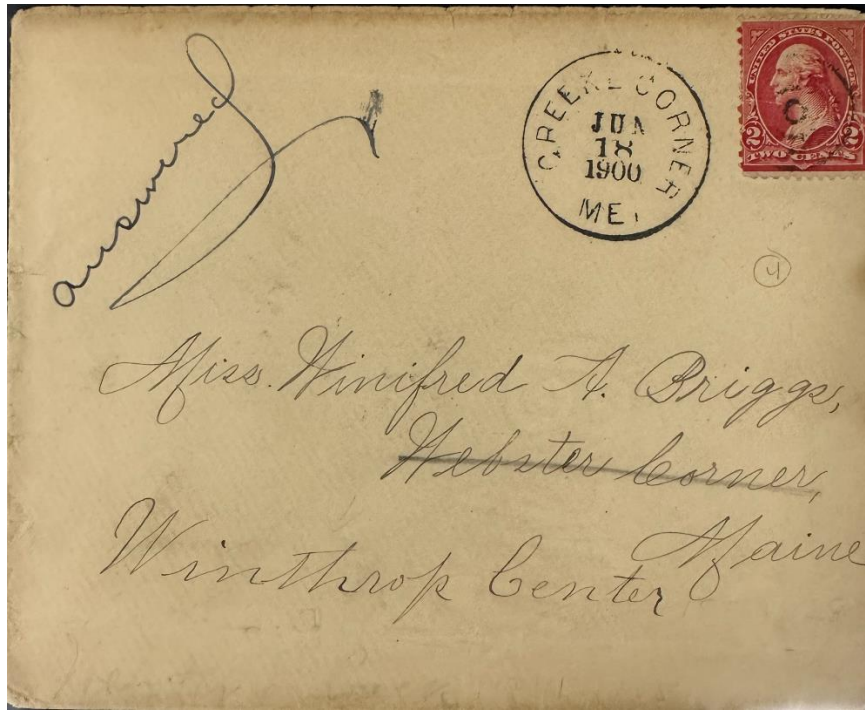 answered
GREENE CORNER
JUN
18
1900
ME.
UNITED STATES POSTAGE
2 2
TWO CENTS
4
Miss. Winifred A. Briggs,
Webster Corner,
Maine
Winthrop Center